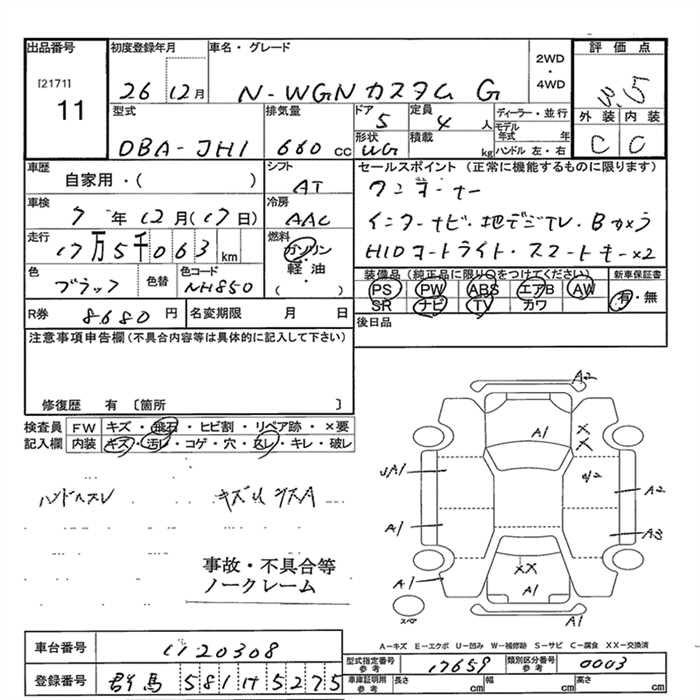 出品番号
[2171]
11
初度登録年月
26 12月
車名・グレード
N-WGNカスタム G
2WD
・
4WD
評価点
3.5
外装 内装
C C
型式
DBA-JH1
排気量
660 cc
ドア
5
定員
4 人
形状
WG
積載
kg
ディーラー・並行
モデル
年式 年
ハンドル 左・右
車歴
自家用・( )
シフト
AT
車検
7年12月(17日)
冷房
AAC
走行
17万5千063 km
燃料
ガソリン
・
軽油
・
( )
色
ブラック
色替
色コード
NH850
セールスポイント(正常に機能するものに限ります)
ワンオーナー
インターナビ・地デジTV・Bカメラ
HIDヘッドライト・スマートキー×2
装備品(純正品に限り○をつけてください)
新車保証書
PS PW ABS エアB AW
有・無
SR ナビ TV カワ
R券 8680円
名変期限 月 日
後日品
注意事項申告欄(不具合内容等は具体的に記入して下さい)
修復歴 有〔箇所 〕
検査員
記入欄
FW キズ・飛石・ヒビ割・リペア跡・×要
内装 キズ・汚レ・コゲ・穴・スレ・キレ・破レ
ハンドルスレ
事故・不具合等
ノークレーム
A2
A1
X
X
A1
A2
A1
A3
XX
A1
A1
A1
A-キズ E-エクボ U-凹み W-補修跡 S-サビ C-腐食 XX-交換済
車台番号
1120308
登録番号
群馬 581 け 5275
型式指定番号
参考
17659
類別区分番号
参考
0003
車庫証明用
参考
長さ cm
幅 cm
高さ cm